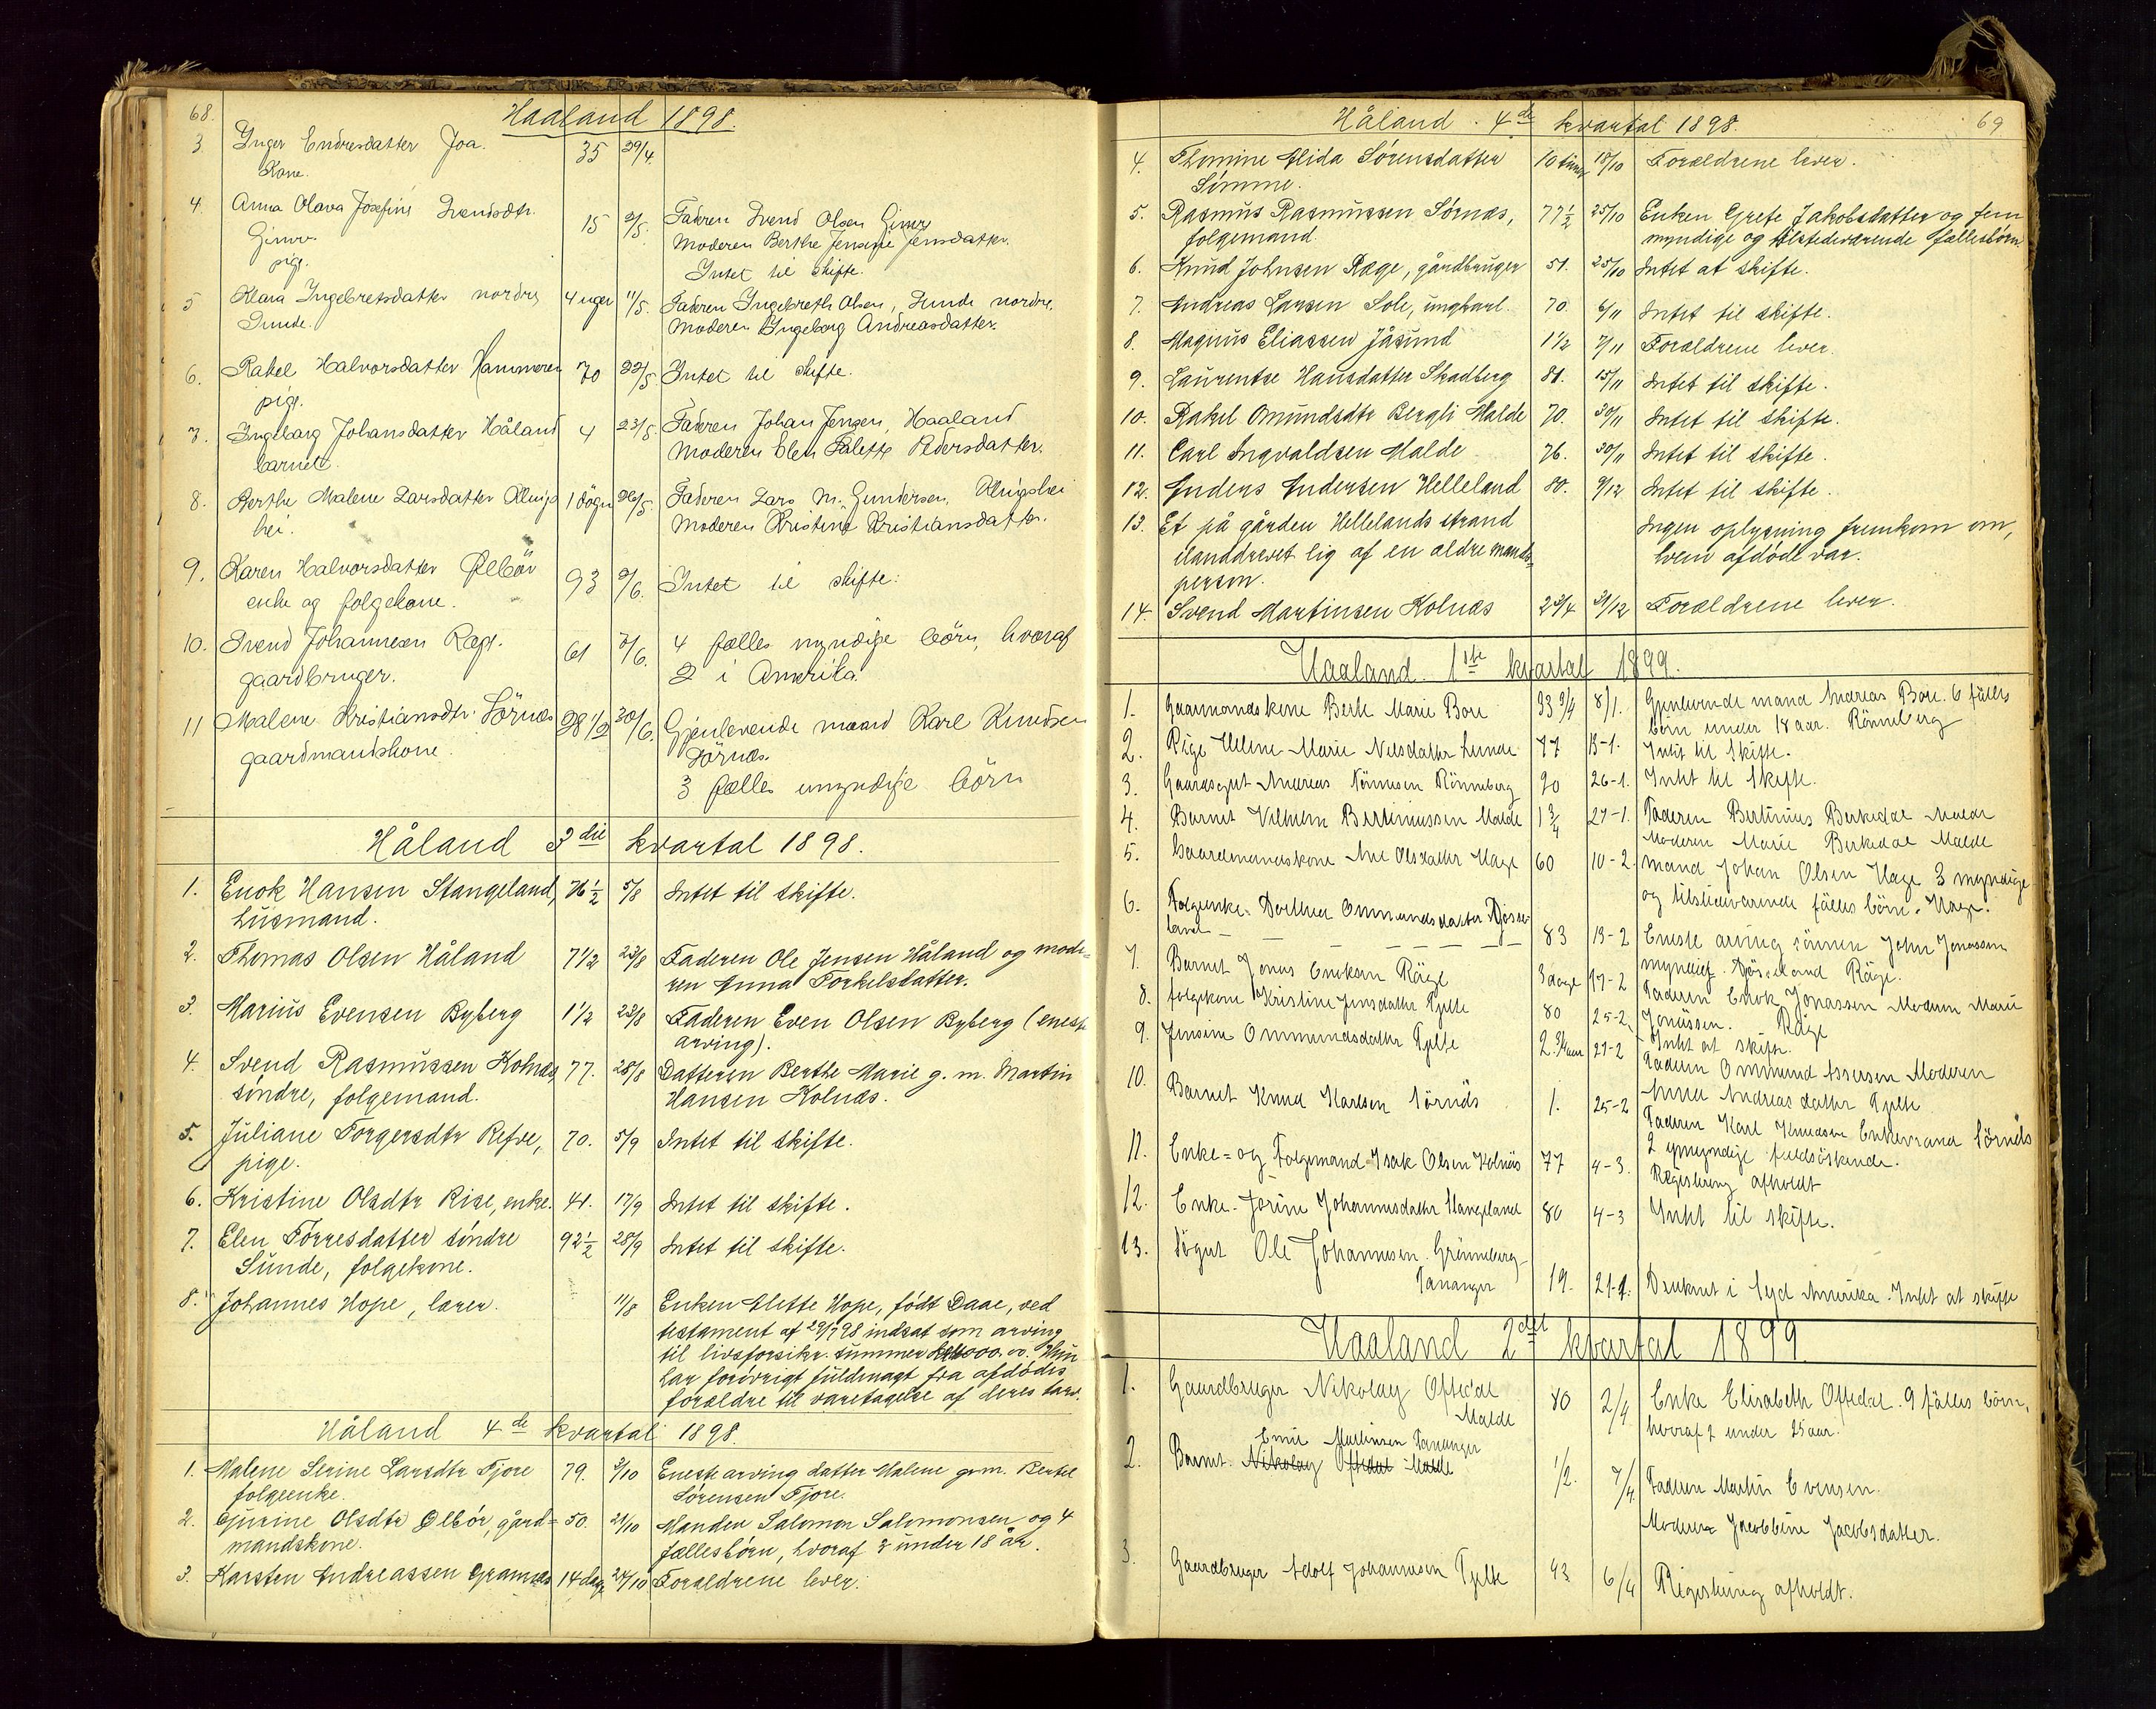 68.
Haaland 1898.
3. Inger Endresdatter Joa. 35 29/4.
Kone.
4. Anna Olava Josefine Svendsdtr.
Gimre 15 2/5. Faderen Svend Olsen Gimre
pige. Moderen Berthe Jensine Jensdatter.
Intet til skifte.
5 Klara Ingebretsdatter nordre 4 uger 11/5. Faderen Ingebreth Olsen, Sunde nordre.
Sunde. Moderen Ingeborg Andreasdatter.
6. Rakel Halvorsdatter Hammeren 70 22/5. Intet til skifte.
pige.
7. Ingeborg Johansdatter Håland 4 23/5. Faderen Johan Jensen, Haaland
barnet. Moderen Elen Palette Pedersdatter.
8. Berthe Malene Larsdatter 1 døgn 26/5. Faderen Lars M. Gundersen,
hei. Moderen Kristine Kristiansdatter.
9. Karen Halvorsdatter Ølbör 93 2/6. Intet til skifte:
enke og folgekone.
10. Svend Johannesen Rege. 61 7/6. 4 fælles myndige börn, hvoraf
gaardbruger. 2 i Amerika
11 Malene Kristiansdtr Sörnæs 28 1/2 30/6. Gjenlevende mand Karl Knudsen
gaardmandskone. Sörnæs.
3 fælles umyndige börn
Håland 3die kvartal 1898.
1. Enok Hansen Stangeland, 76 1/2 5/8 Intet til skifte.
husmand.
2. Thomas Olsen Håland 7 1/2 23/8 Faderen Ole Jensen Håland og mode-
ren Anna Torkelsdatter.
3. Marius Evensen Byberg 1 1/2 23/8 Faderen Even Olsen Byberg (eneste
arving).
4. Svend Rasmussen Kolnæs 77. 28/8 Datteren Berthe Marie g. m. Martin
søndre, folgemand. Hansen Kolnæs.
5. Juliane Torgersdtr Refve, 70. 5/9 Intet til skifte.
pige.
6. Kristine Olsdtr Rise, enke. 41. 17/9 Intet til skifte.
7. Elen Tørresdatter søndre 92 1/2 28/9 Intet til skifte.
Sunde, folgekone.
8. Johannes Hope, lærer. 11/8 Enken Alette Hope, født Daae, ved
testament af 29/7 98 indsat som arving
til livsforsikr. summen
har forøvrigt fuldmagt fra afdødes
forældre til varetagelse af deres tarv.
Håland 4de kvartal 1898.
1. Malene Serine Larsdtr Tjore 79. 3/10 Eneste arving datter Malene g.m. Bertel
folgeenke. Sørensen Tjore.
2. Gjurine Olsdtr Ølbör, gård= 50. 21/10 Manden Salomon Salomonsen og 4
mandskone. fællesbørn, hvoraf 3 under 18 år.
3. Karsten Andreassen Grannes 14 dage 24/10 Forældrene lever.
Håland. 4de kvartal 1898. 69
4. Thomine Alida Sørensdatter 10 timer 18/10 Forældrene lever.
Sømme.
5. Rasmus Rasmussen Sørnæs, 77 1/2 25/10 Enken Grete Jakobsdatter og fem
folgemand. myndige og tilstedeværende fællesbørn.
6. Knud Johnsen Ræge, gårdbruger 51. 25/10 Intet at skifte.
7. Andreas Larsen Sole, ungkarl. 70. 6/11 Intet til skifte.
8. Magnus Eliassen Jåsund 1 1/2 7/11 Forældrene lever.
9. Laurentse Hansdatter Skadberg 81. 15/11 Intet til skifte.
10. Rakel Omundsdtr Bergli Malde 70. 30/11 Intet til skifte.
11. Carl Ingvaldsen Malde 76. 30/11 Intet til skifte.
12. Anders Andersen Helleland 80. 9/12 Intet til skifte.
13. Et på gården Hellelands strand Ingen oplysning fremkom om,
ilanddrevet lig af en ældre mands= hvem afdøde var.
person.
14. Svend Martinsen Kolnæs 2 3/4 31/12 Forældrene lever.
Haaland. 1ste kvartal 1899.
1. Gaarmandskone Berte Marie Bore 33 3/4 8/1. Gjenlevende mand Andreas Bore. 6 fälles
börn under 18 aar. Rönneberg
2. Pige Helene Marie Nilsdatter Sunde 77 13-1. Intet til Skifte.
3. Gaardsgut Andreas Tönnesen Rönneberg 20 26-1. Intet til Skifte.
4. Barnet Vilhelm Bertiniussen Malde 1 3/4 27-1. Faderen Bertinius Berkedal Malde
Moderen Marie Berkedal Malde
5. Gaardmandskone Ane Olsdatter Hage 60 10-2. Mand Johan Olsen Hage 3 myndige
og tilstedeværende fälles börn. Hage.
6. Folgeenke. Dorthea Ommundsdatter
land 83 13-2 Eneste arving sönnen John Jonassen
myndig. Räge.
7. Barnet Jonas Enoksen Räge 3 dage 17-2 Faderen Enok Jonassen Moderen Marie
Jonassen. Räge
8. folgekone Kristine Jensdatter Tjelte 80 25-2. Intet at skifte.
9. Jensine Ommundsdatter Tjelte 2 3/4 aar 27-2 Faderen Ommund Assersen Moderen
Anna Andreasdatter Tjelte
10. Barnet Knud Karlsen Sörnäs 1. 25-2 Faderen Karl Knudsen Enkemand Sörnäs
2 umyndige fuldsöskende.
11. Enke= og Folgemand Isak Olsen Kolnäs 77 4-3. Registrering afholdt
12. Enke. Jorine Johannesdatter Stangeland 80 4-3 Intet til skifte.
13. Sögut Ole Johannesen. Grönneberg
Tananger 19. 21-1. Druknet i Syd Amerika. Intet at skifte
Haaland 2det kvartal 1899.
1. Gaardbruger Nikolay Oftedal 80 2/4 Enke Elisabeth Oftedal. 9 fälles börn,
Malde hvoraf 2 under 25 aar.
Emil Martinsen Tananger
2. Barnet. Nikolay Oftedal Malde 1/2. 7/4. Faderen Martin Evensen.
Moderen Jacobbine Jacobsdatter.
3. Gaardbruger Adolf Johannesen Tjelte 43 6/4 Registrering afholdt.